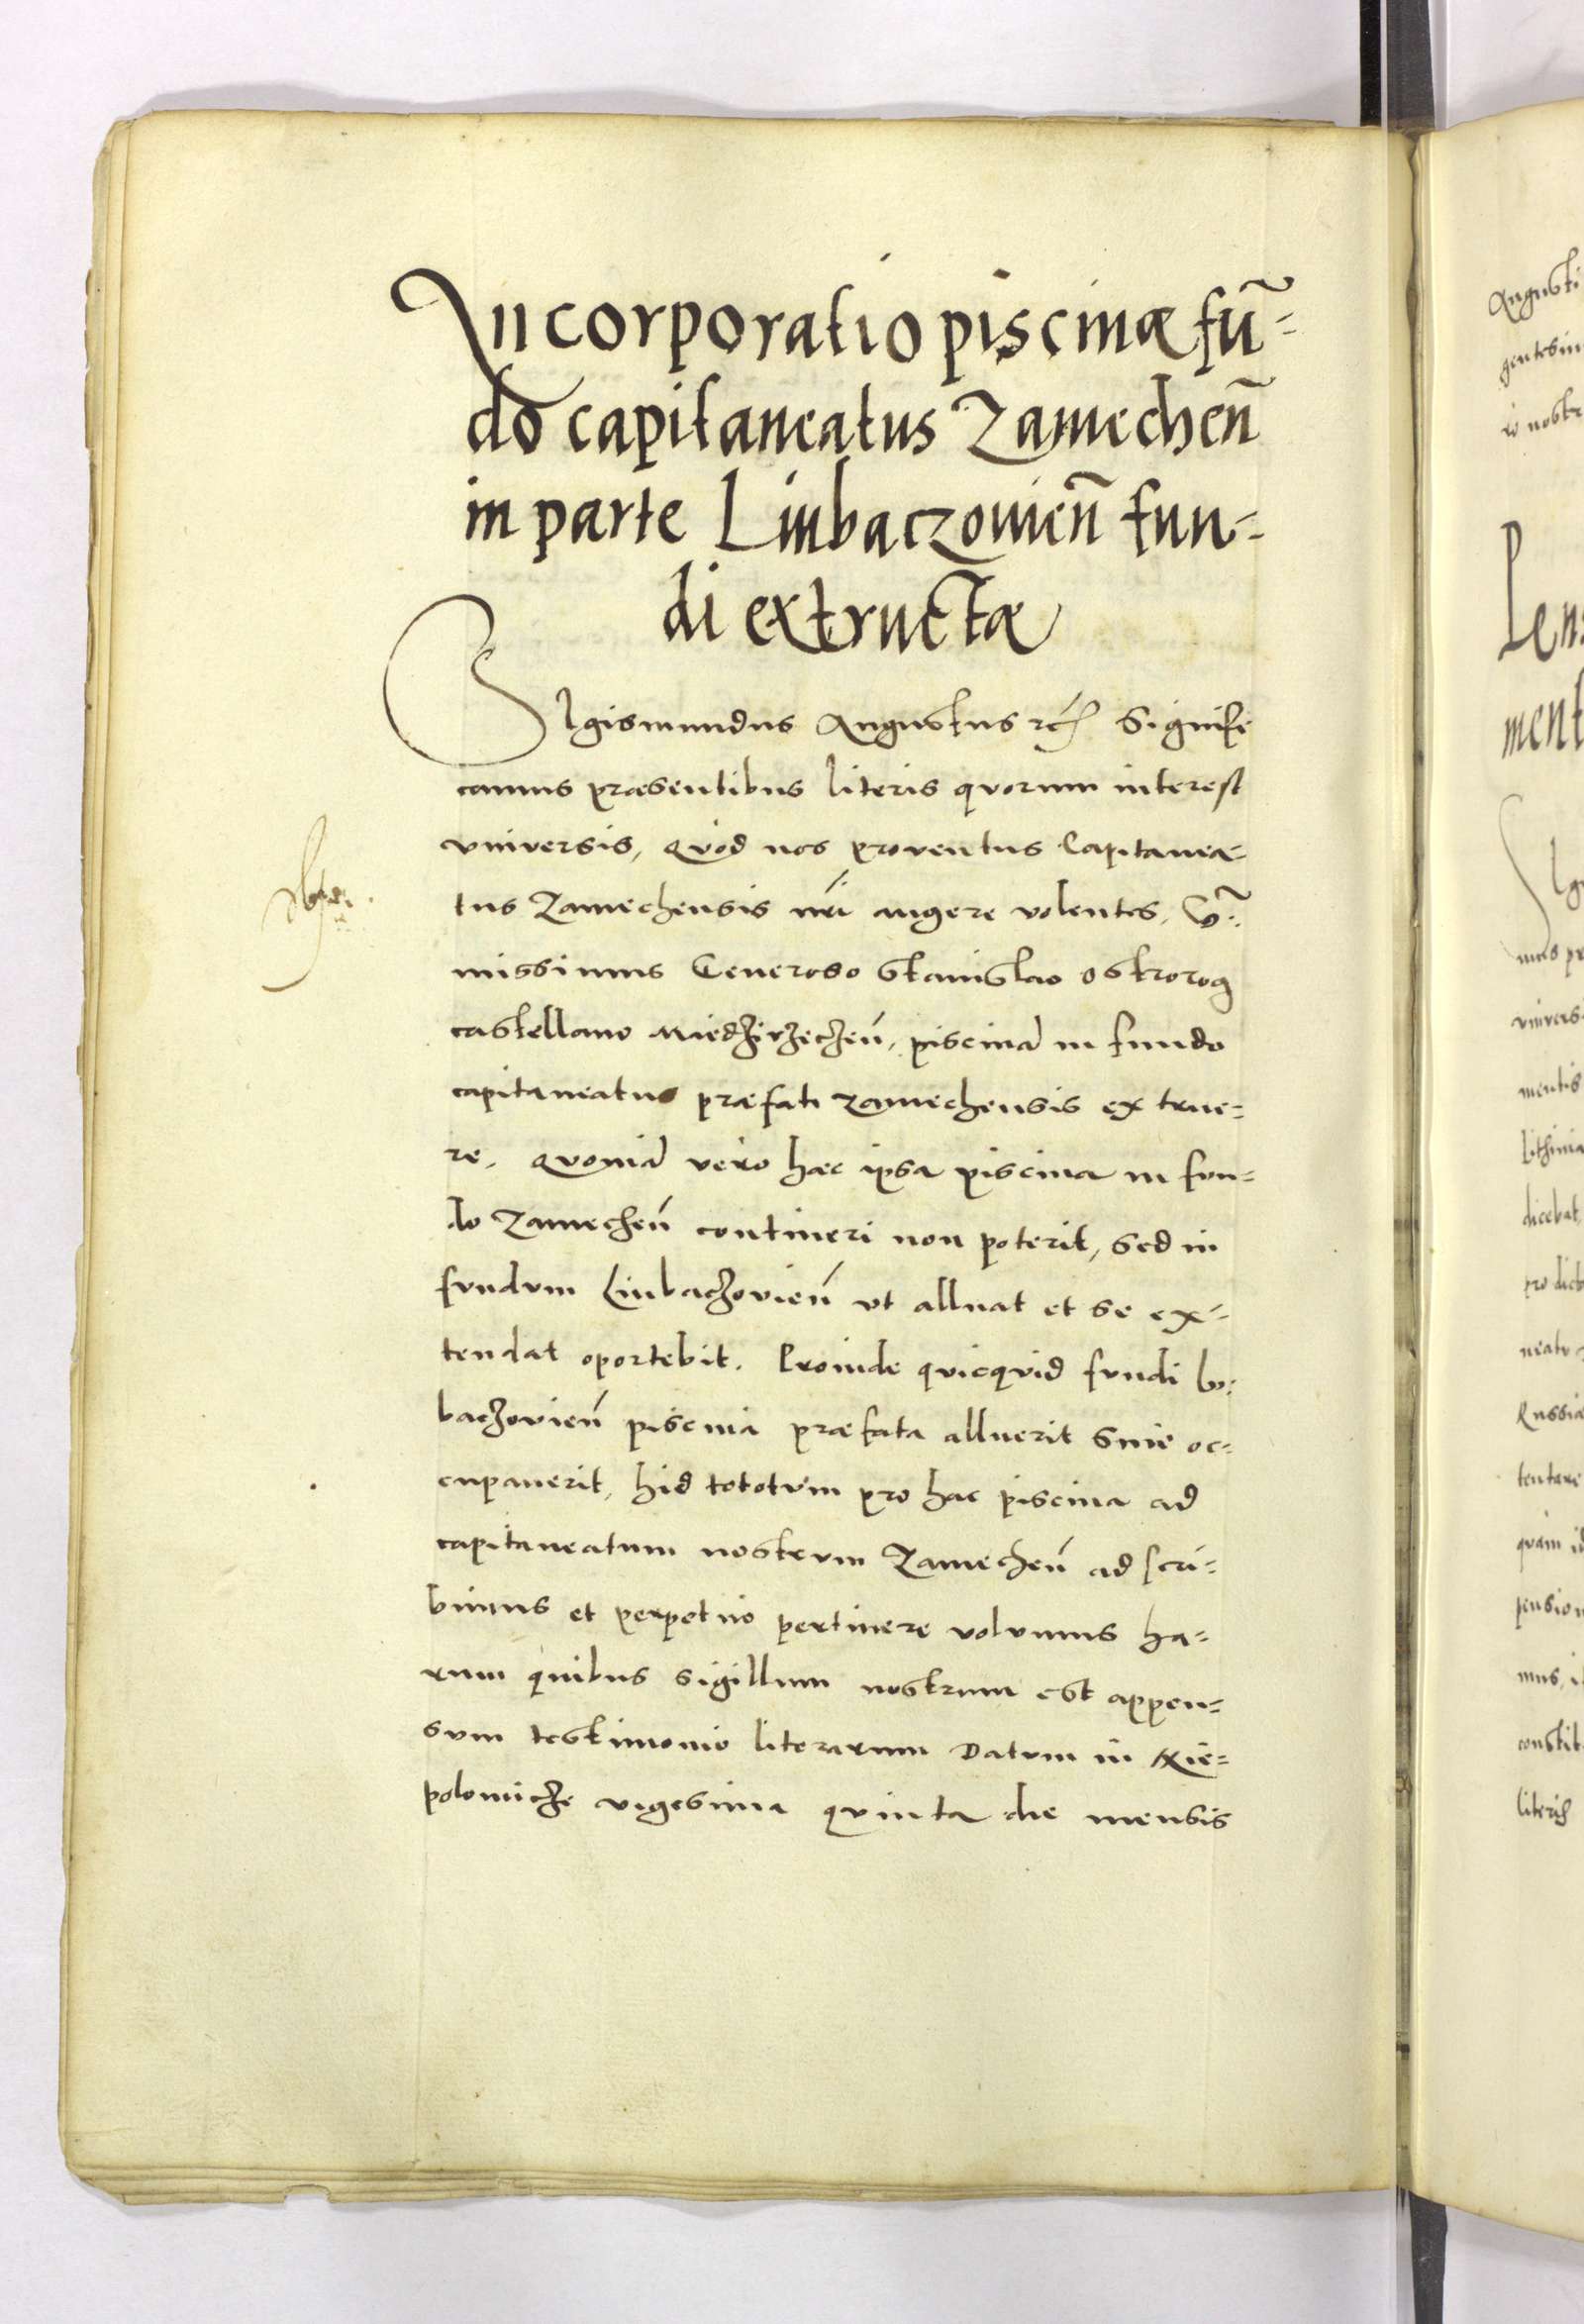 Incorporatio piscinæ fũ-
do capitaneatus Zamechẽn
in parte Liubaczoviẽn fun-
di extructæ
SIgismundus Augustus etc Signifi
camus præsentibus literis quorum interest
vniversis, Quod nos proventus Capitanea-
tus Zamechensis nr̃i augere volentes, Com̃-
missimus Generoso Stanislao Ostrorog
castellano Miedzirzeczeñ, piscinã in fundo
capitaneatus præfati zamechensis extrue-
re, Quoniã vero hæc ipsa piscina in fun-
do Zamecheñ contineri non poterit, sed in
fundum Liubaczovieñ vt alluat et se ex-
tendat oportebit. Proinde quicquid fundi lu-
baczovieñ piscina præfata alluerit siue oc-
cupauerit, hid tototum pro hac piscina ad
capitaneatum nostrum Zamecheñ adscri-
bimus et perpetuo pertinere volumus ha-
rum quibus sigillum nostrum est appen-
sum testimonio literarum Datum in Nie-
polomicze vigesima quinta die mensis
Augusti
gentesim
ro nostr
Pens
ment
SIg
mus pr
vnivers
mentis
lithua
dicebat,
pro dict
neatu
Russiæ
tentare
quam
pension
mus,
constit
literis